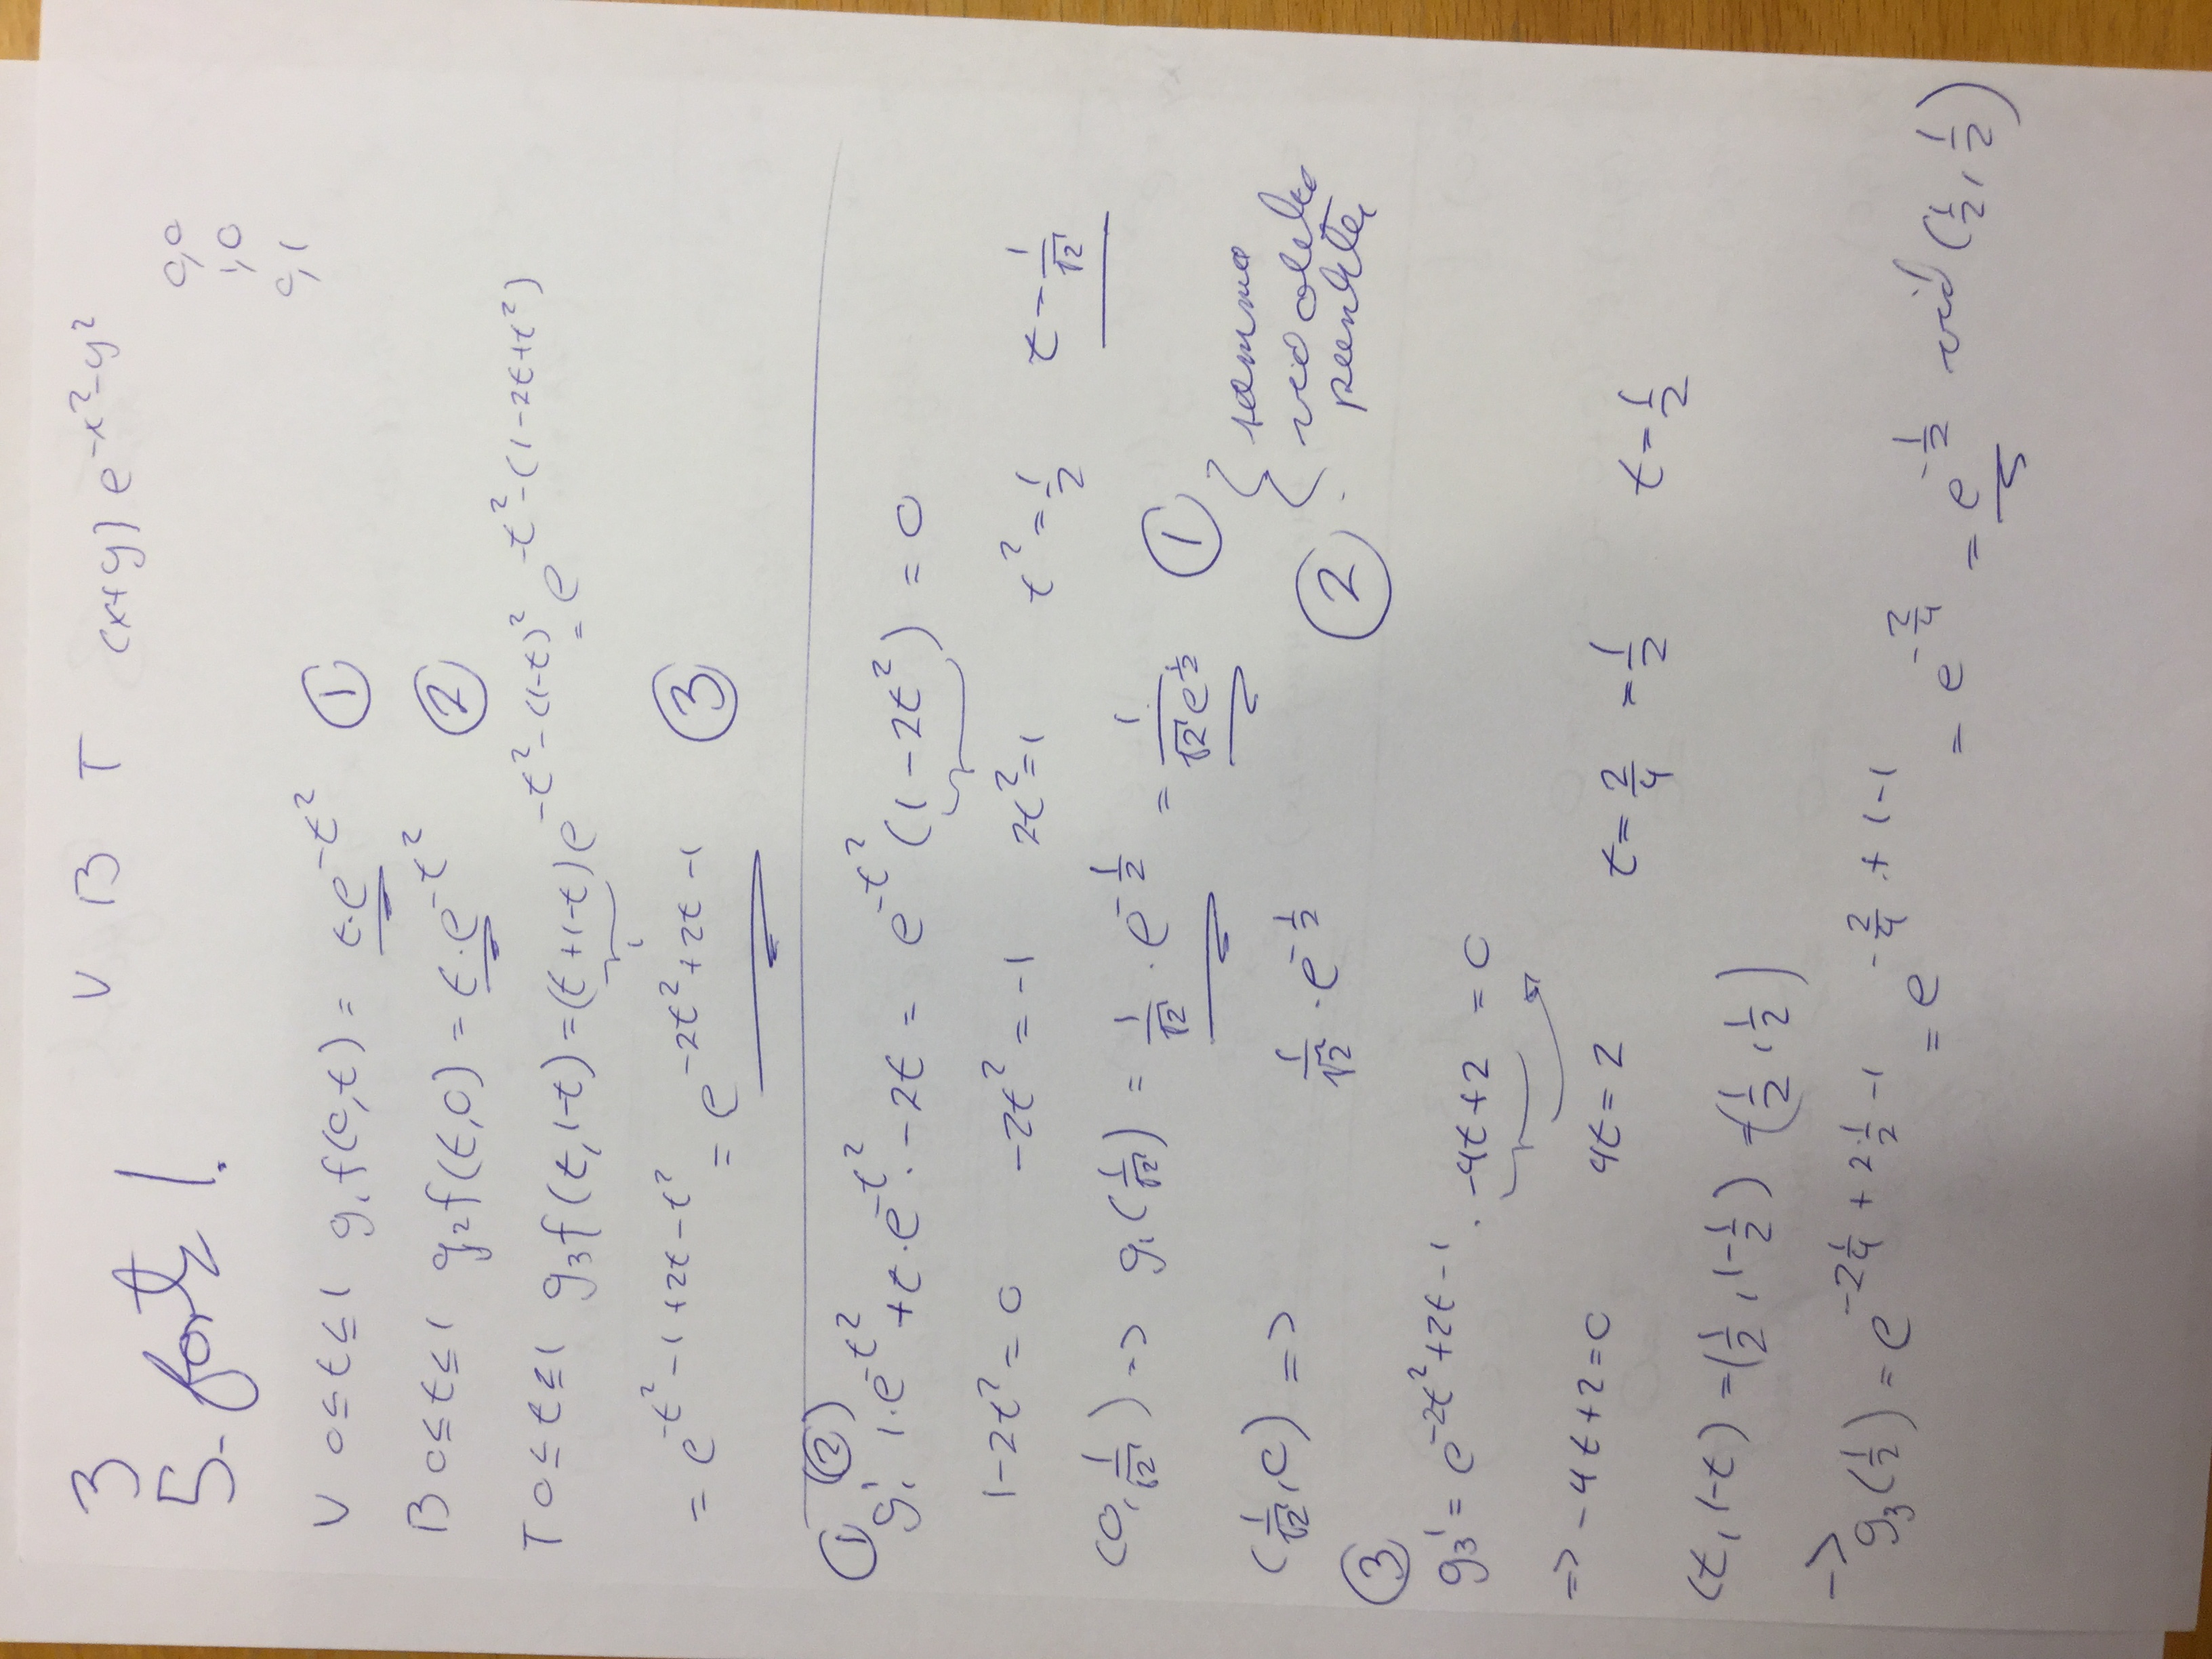 3
5. forts!
V B T (x+y) e^{-x²-y²}
0,0
1,0
0,1
V 0≤t≤1 g₁ f(0,t) = t·e^{-t²} ①
B 0≤t≤1 g₂ f(t,0) = t·e^{-t²} ②
T 0≤t≤1 g₃ f(t,1-t) = (t+1-t) e^{-t²-(1-t)²} = e^{-t²-(1-2t+t²)}
1
= e^{-t²-1+2t-t²} = e^{-2t²+2t-1} ③
① (②)
g₁' 1·e^{-t²} + t·e^{-t²}· -2t = e^{-t²} (1-2t²) = 0
1-2t² = 0 -2t² = -1 2t² = 1 t² = 1/2 t = 1/√2
(0, 1/√2) => g₁(1/√2) = 1/√2 · e^{-1/2} = 1/(√2 e^{1/2}) ①
(1/√2, 0) => 1/√2 · e^{-1/2} ② } samma
vid
punkter
③
g₃' = e^{-2t²+2t-1} · -4t+2 = 0
=> -4t+2=0 4t = 2 t = 2/4 = 1/2 t = 1/2
(t, 1-t) = (1/2, 1-1/2) = (1/2, 1/2)
-> g₃(1/2) = e^{-2 1/4 + 2·1/2 - 1} = e^{-2/4 + 1-1} = e^{-2/4} = e^{-1/2} vid (1/2, 1/2)